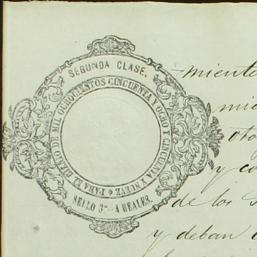 SEGUNDA CLASE.
PARA EL BIENIO DE MIL OCHOCIENTOS CINCUENTA Y OCHO Y CINCUENTA Y NUEVE
SELLO 3º A REALES.
y co
de los
y deban